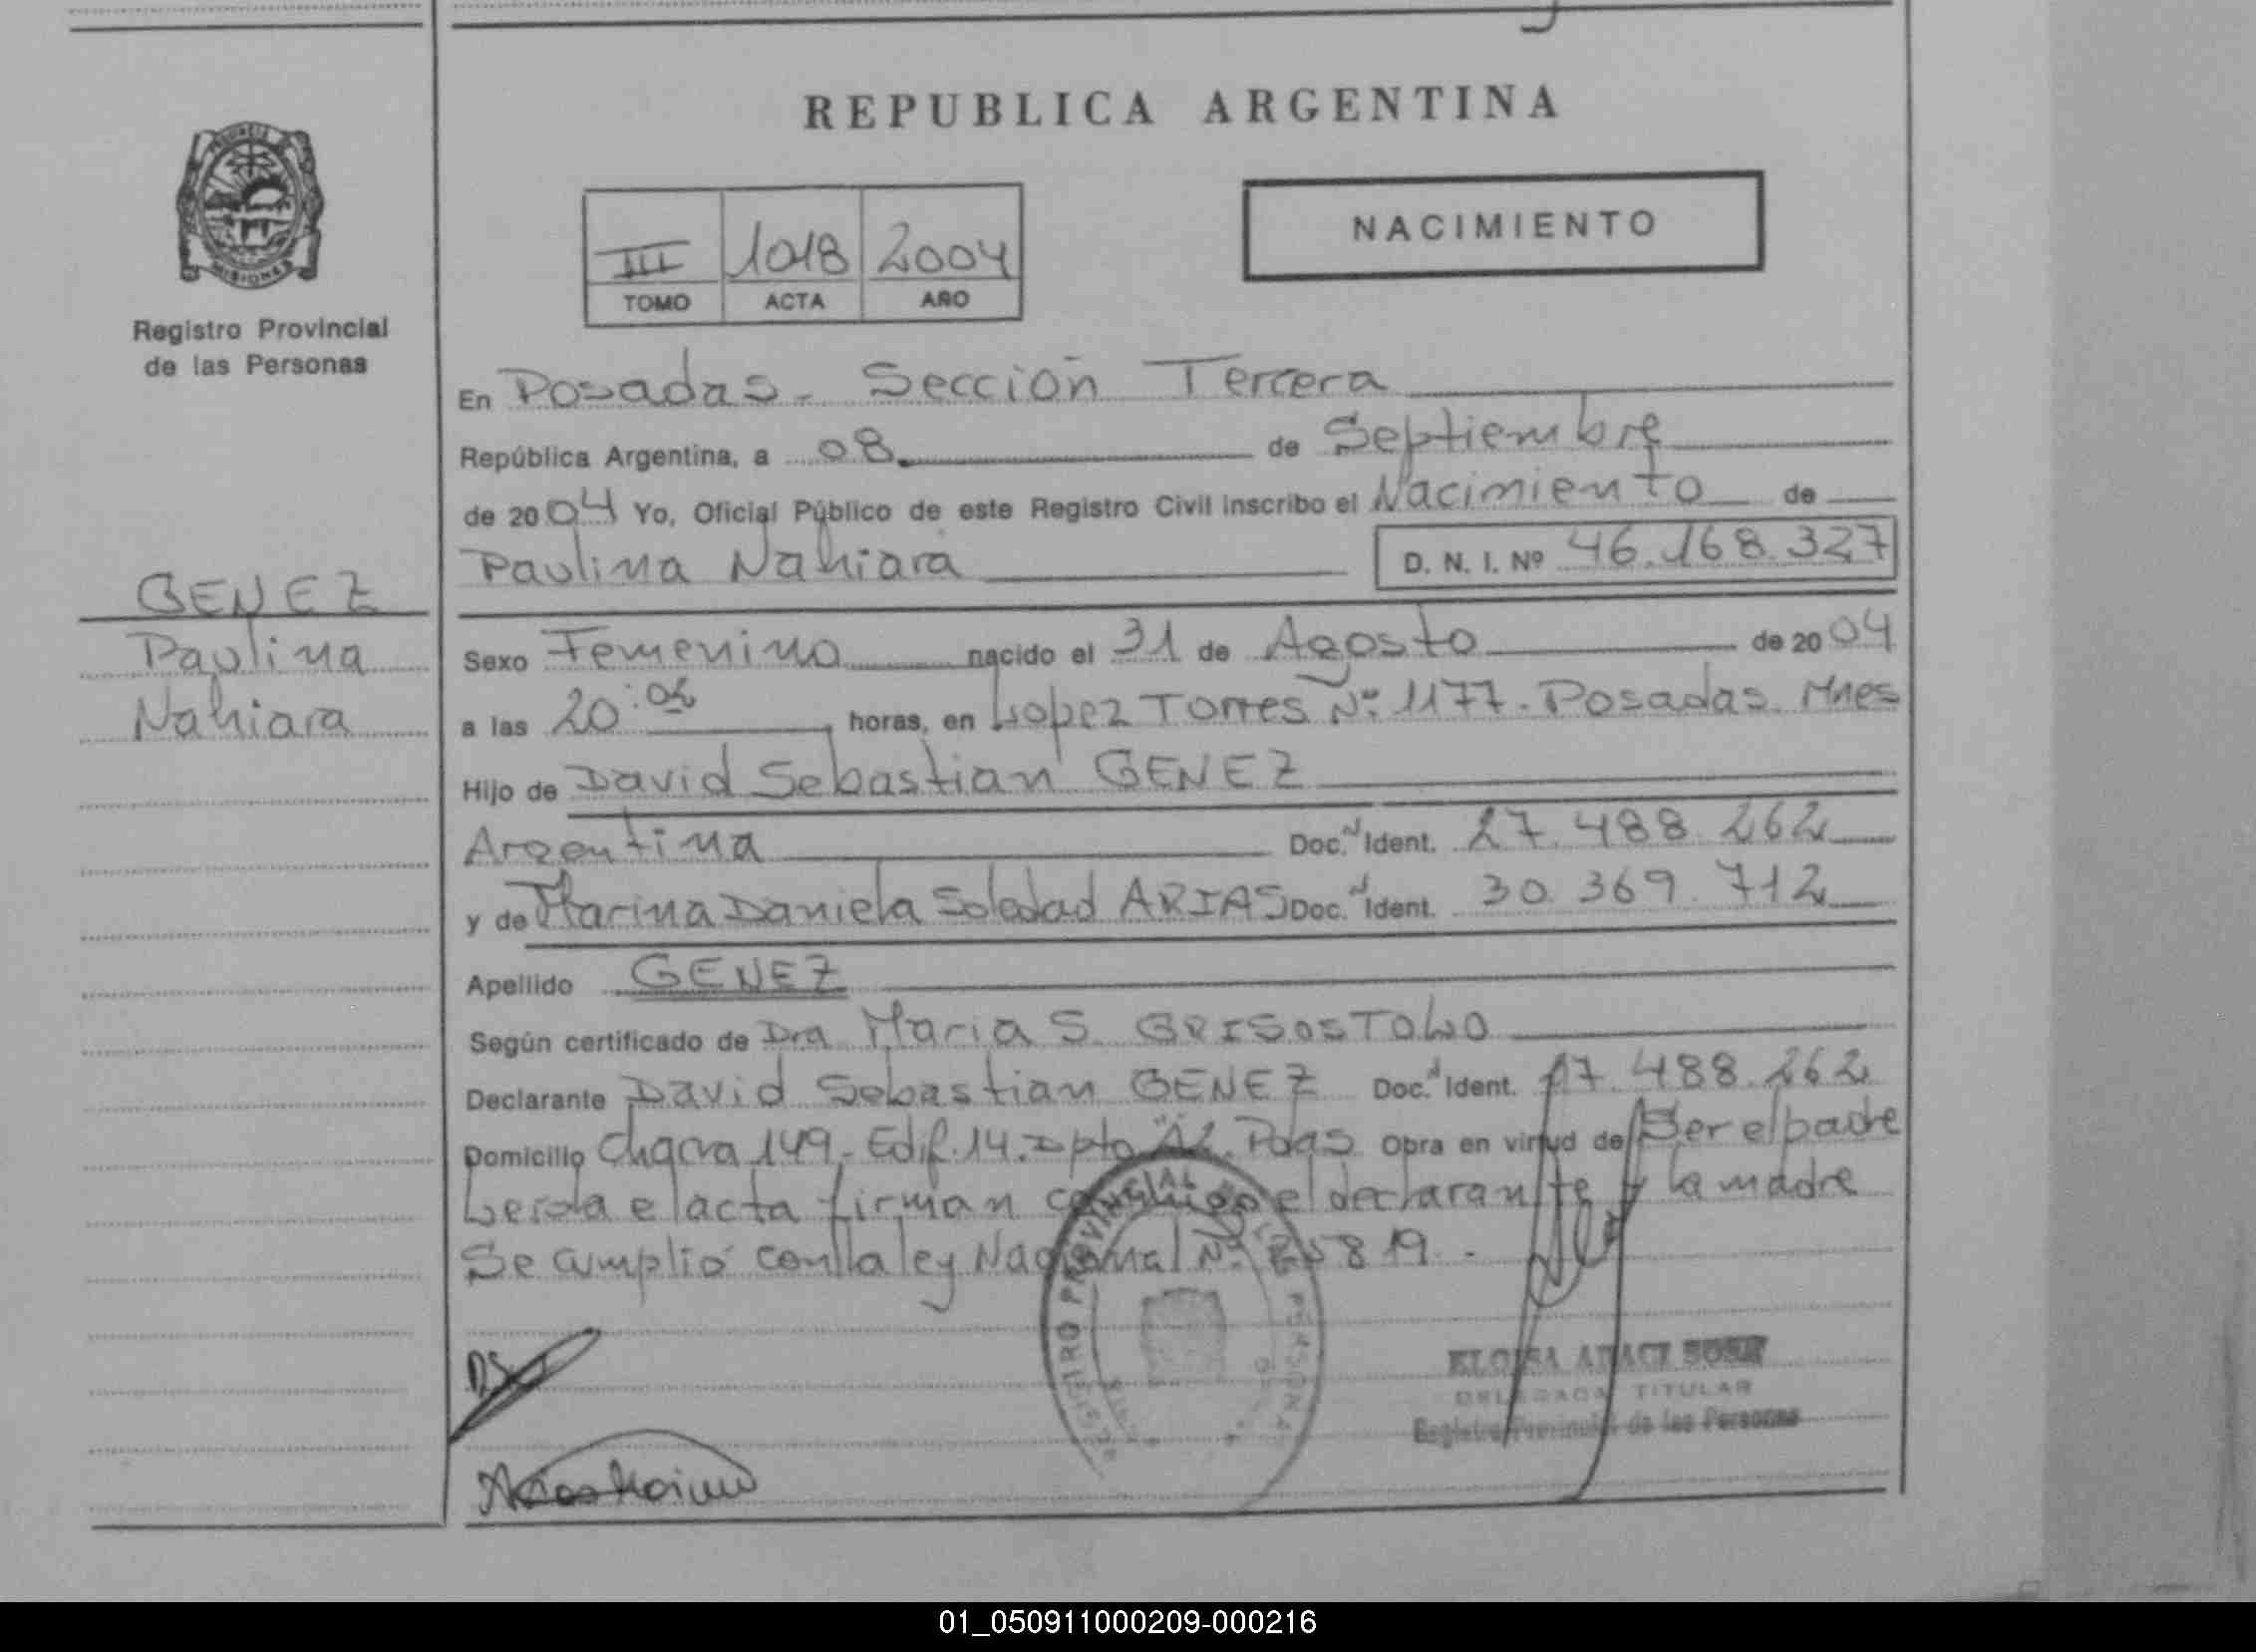 REPUBLICA ARGENTINA
NACIMIENTO
III 1018 2004
TOMO ACTA AÑO
MISIONES
Registro Provincial
de las Personas
En Posadas. Sección Tercera
República Argentina, a 08. de Septiembre
de 2004 Yo, Oficial Público de este Registro Civil inscribo el Nacimiento de
Paulina Nahiara D. N. I. Nº 46.168.327
GENEZ
Paulina
Nahiara
Sexo Femenino nacido el 31 de Agosto de 2004
a las 20: horas, en Lopez Torres Nº 1177. Posadas. Mnes
Hijo de David Sebastian GENEZ
Argentina Doc. Ident. 27.488.262
y de Marina Daniela Soledad ARIAS Doc. Ident. 30.369.712
Apellido GENEZ
Según certificado de Dra Maria S. GRISOSTOLO
Declarante David Sebastian GENEZ Doc. Ident. 27.488.262
Domicilio Chacra 149. Edif. 14. Dpto Pdas Obra en virtud de Ser el padre
Leida el acta firman conmigo el declarante y la madre
Se cumplió con la ley Nacional Nº 25819.
REGISTRO PROVINCIAL
ELOISA ARACI SOSA
DELEGADA TITULAR
Registro Provincial de las Personas
Arias Marina
01_050911000209-000216